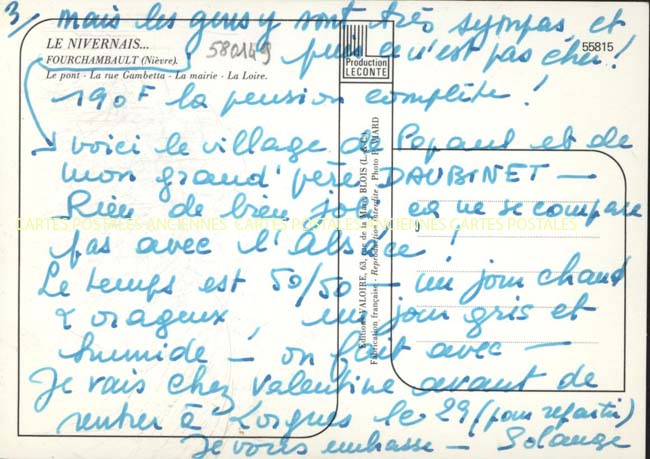 3/ mais les gens y sont très sympas et
LE NIVERNAIS...
FOURCHAMBAULT (Nièvre).
580149
puis ce n'est pas cher !
Production
LECONTE
55815
Le pont - La rue Gambetta - La mairie - La Loire.
190F la pension complète !
voici le village de Papant et de
mon grand'père DAUBINET —
Rien de bien joli ça ne se compare
pas avec l'Alsace !
CARTES POSTALES ANCIENNES CARTES POSTALES ANCIENNES CARTES POSTALES
Le temps est 50/50 — un jour chaud
& orageux, un jour gris et
humide — on fait avec —
Je vais chez Valentine avant de
rentrer à Lorgues le 29 (pour repartir)
Je vous embrasse — Solange
Editions VALOIRE, 63, rue de la Mare, BLOIS (L.-&-C.)
Fabrication française - Reproduction interdite - Photo